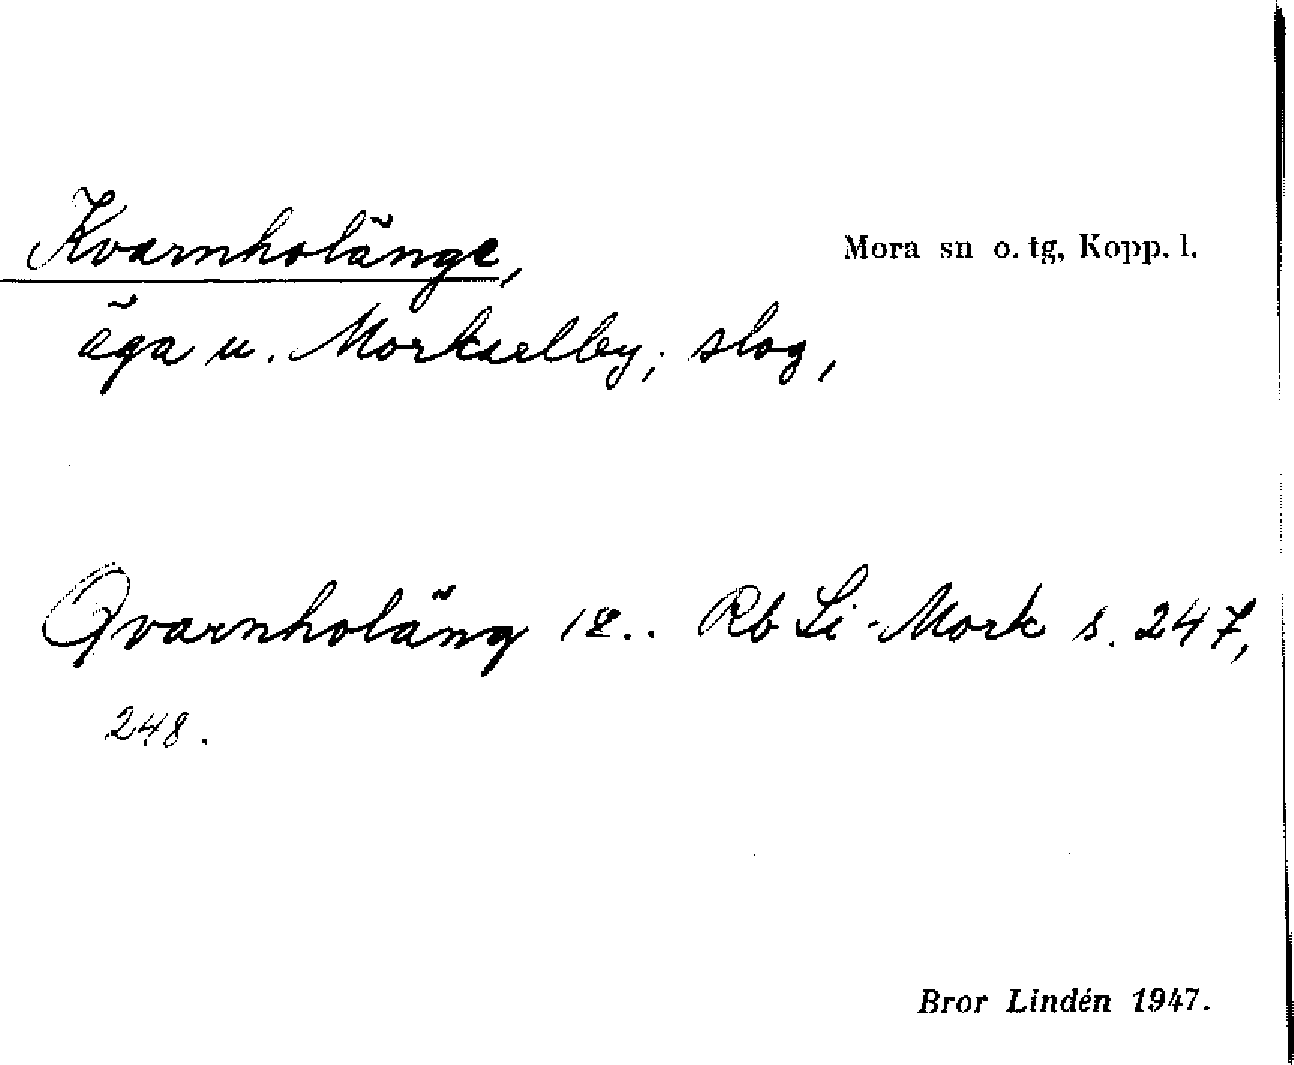 Kvarnholänge,
Mora sn o. tg, Kopp. l.
äga u. Morkarlby; slog,
Qvarnholäng 18.. Rb Li-Mork s. 247,
248.
Bror Lindén 1947.